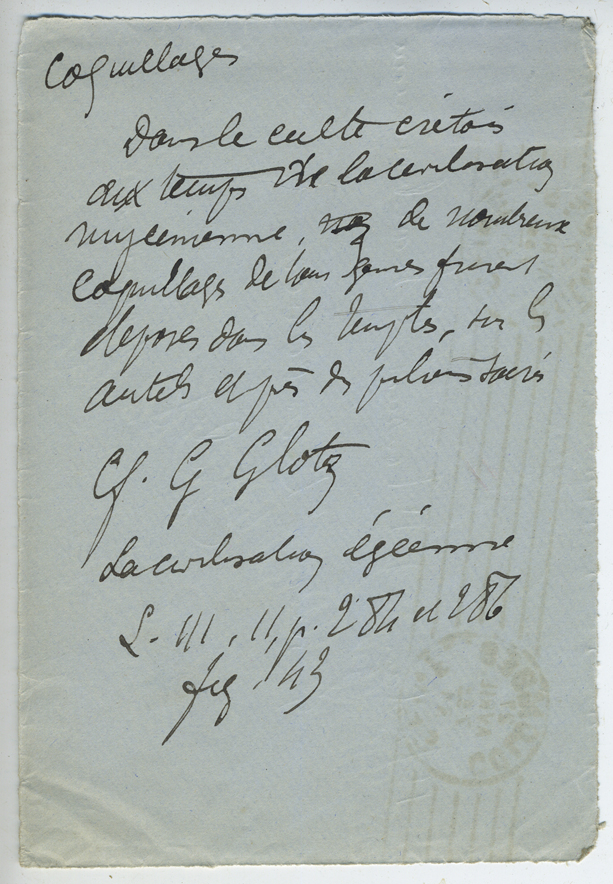 Coquillages
Dans le culte crétois
aux temps de la civilisation
mycénienne, de nombreux
coquillages de tous genres furent
déposés dans les temples, sur les
autels et près des piliers sacrés
Cf. G Glotz
La civilisation égéenne
L. III, II, p. 284 et 286
fig. 43